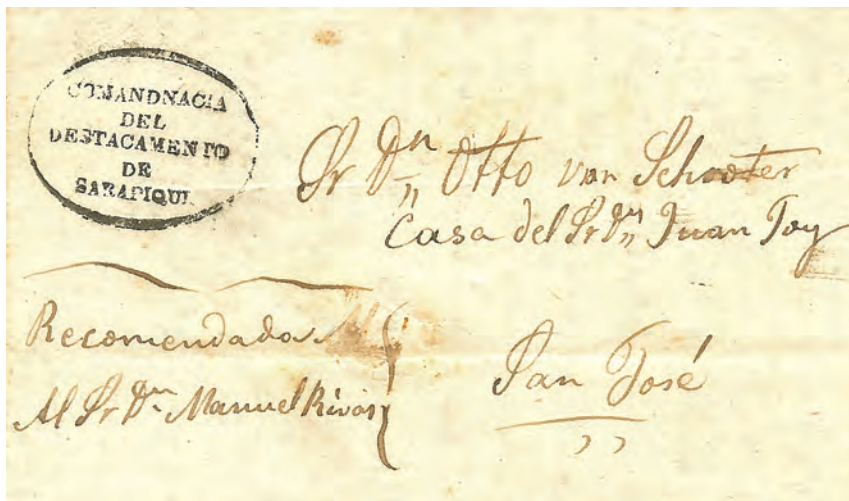 COMANDNACIA
DEL
DESTACAMENTO
DE
SARAPIQUI
Sr Dn Otto van Schooter
Casa del Sr Dn Juan Joy
Recomendada
Al Sr Dn Manuel Rivas
San José